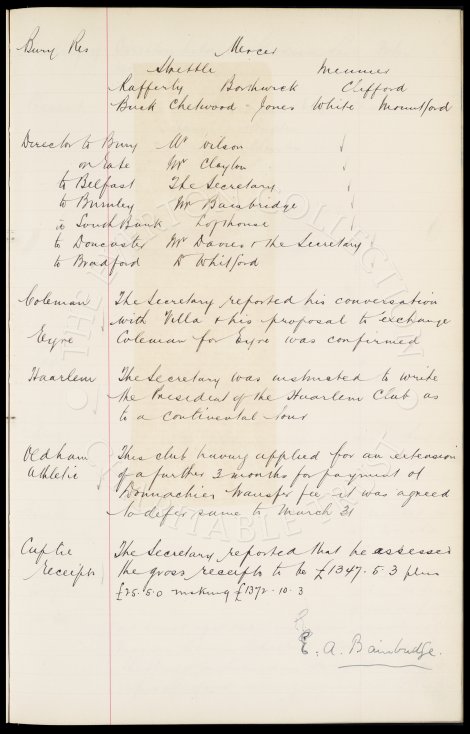 Bury Res Mercer
Strettle Meunier
Rafferty Borthwick Clifford
Buck Chetwood Jones White Mountford
Director to Bury Mr Wilson
on Gate Mr Clayton
to Belfast The Secretary
to Burnley Mr Bainbridge
to South Bank Lofthouse
to Doncaster Mr Davies & the Secretary
to Bradford Dr Whitford
Coleman The Secretary reported his conversation
with Villa & his proposal to exchange
Eyre Coleman for Eyre was confirmed
Haarlem The Secretary was instructed to write
the President of the Haarlem Club as
to a continental tour
Oldham This club having applied for an extension
Athletic of a further 3 months for payment of
Donnachies transfer fee it was agreed
to defer same to March 31
Cup tie The Secretary reported that he assessed
receipts the gross receipts to be £1347.5.3 plus
£25.5.0 making £1372.10.3
E. A. Bainbridge.